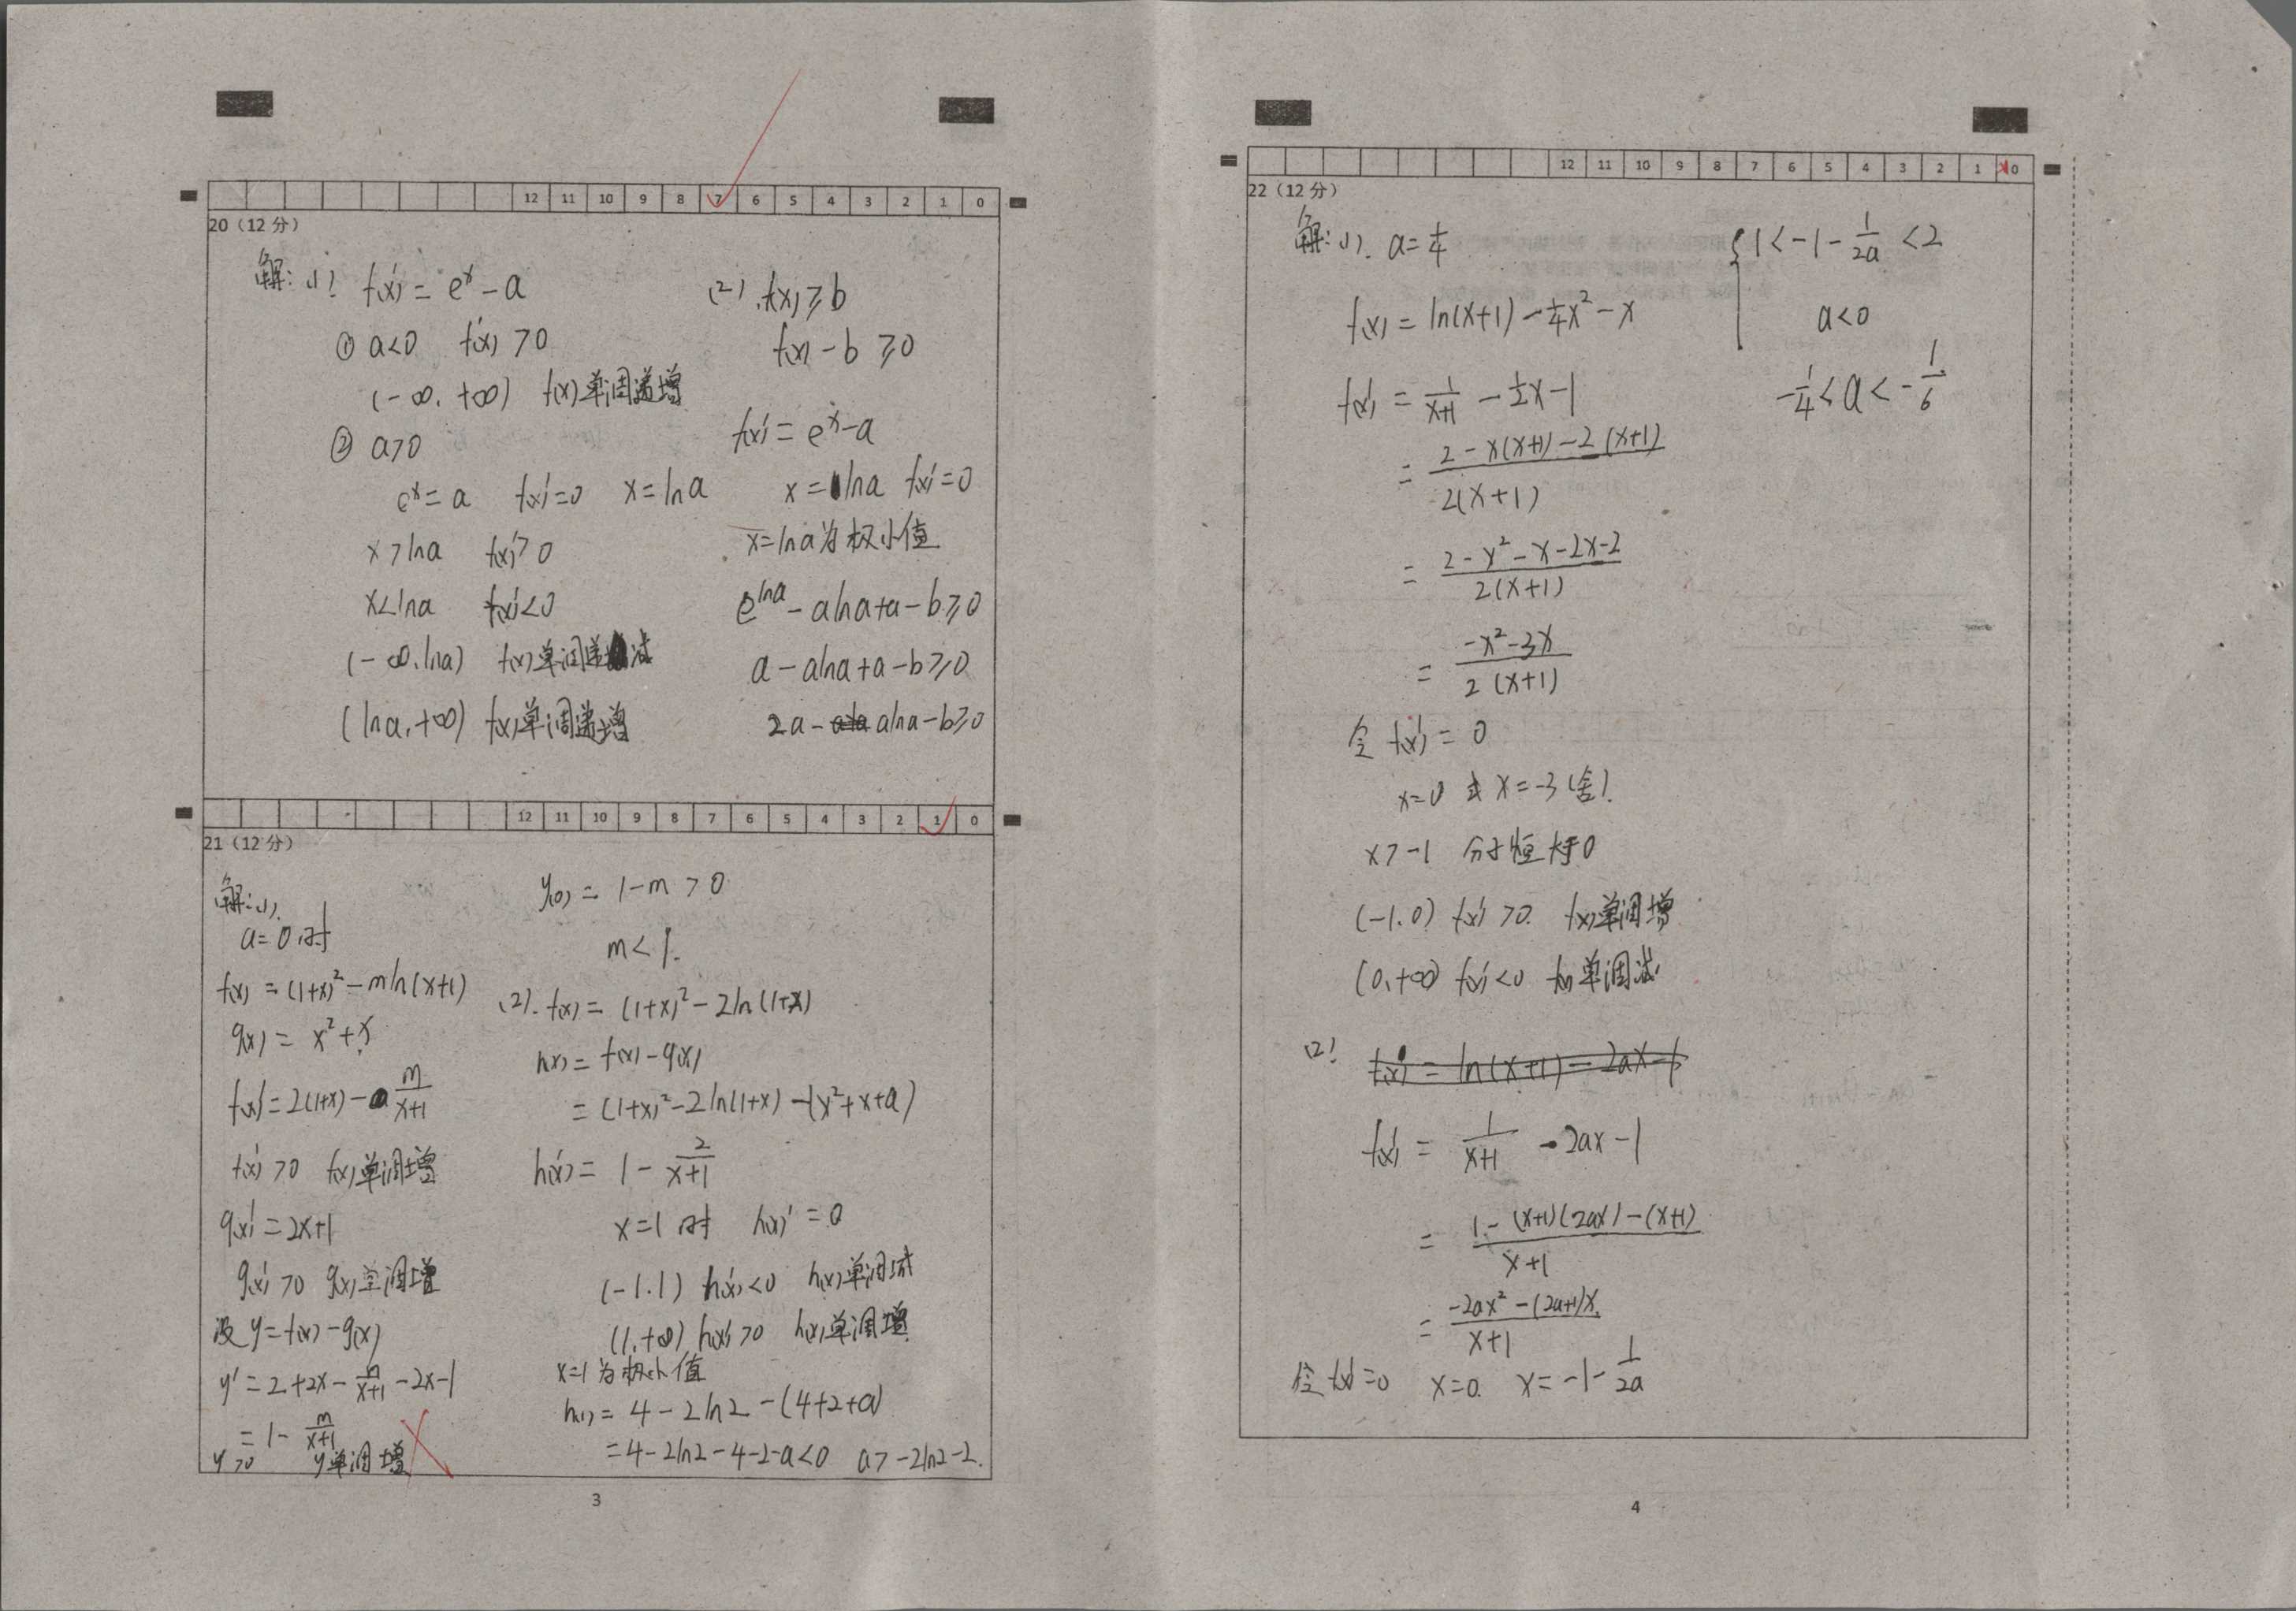 12 11 10 9 8 7 6 5 4 3 2 1 0
20（12 分）
解: (1) f(x)' = eˣ - a
① a<0 f(x)' >0
(-∞, +∞) f(x)单调递增
② a>0
eˣ = a f(x)'=0 x=lna
x>lna f(x)'>0
x<lna f(x)'<0
(-∞, lna) f(x)单调递减
(lna, +∞) f(x)单调递增
(2). f(x)≥b
f(x) - b ≥0
f(x)' = eˣ-a
x = lna f(x)'=0
x=lna为极小值
e^{lna} - alna+a - b≥0
a - alna+a - b≥0
2a - alna - b≥0
12 11 10 9 8 7 6 5 4 3 2 1 0
21（12 分）
解:(1).
a=0时
f(x) = (1+x)² - mln(x+1)
g(x) = x²+x
f(x)' = 2(1+x) - m/(x+1)
f(x)' >0 f(x)单调增
g(x)' = 2x+1
g(x)' >0 g(x)单调增
设 y=f(x) - g(x)
y' = 2+2x - m/(x+1) - 2x-1
= 1 - m/(x+1)
y'>0 y单调增
y(0) = 1-m >0
m<1.
(2). f(x) = (1+x)² - 2ln(1+x)
h(x) = f(x) - g(x)
= (1+x)² - 2ln(1+x) - (x²+x+a)
h(x)' = 1 - 2/(x+1)
x=1 时 h(x)' =0
(-1.1) h(x)'<0 h(x)单调减
(1,+∞) h(x)'>0 h(x)单调增
x=1为极小值
h(1) = 4 - 2ln2 - (4+2+a)
=4-2ln2-4-2-a<0 a>-2ln2-2.
3
12 11 10 9 8 7 6 5 4 3 2 1 0
22（12 分）
解:(1). a=1/4
f(x) = ln(x+1) - 1/4x² - x
f(x)' = 1/(x+1) - 1/2x - 1
= (2 - x(x+1) - 2(x+1))/(2(x+1))
= (2 - x² - x - 2x - 2)/(2(x+1))
= (-x² - 3x)/(2(x+1))
令 f(x)' = 0
x=0 或 x=-3(舍).
x>-1 分母恒大于0
(-1.0) f(x)' >0. f(x)单调增
(0,+∞) f(x)' <0 f(x)单调减
(2) f(x)' = ln(x+1) - 2ax - 1
f(x)' = 1/(x+1) - 2ax - 1
= (1 - (x+1)(2ax) - (x+1))/(x+1)
= (-2ax² - (2a+1)x)/(x+1)
令f(x)'=0 x=0. x=-1-1/2a
{ 1<-1-1/2a<2
a<0
-1/4<a<-1/6
4